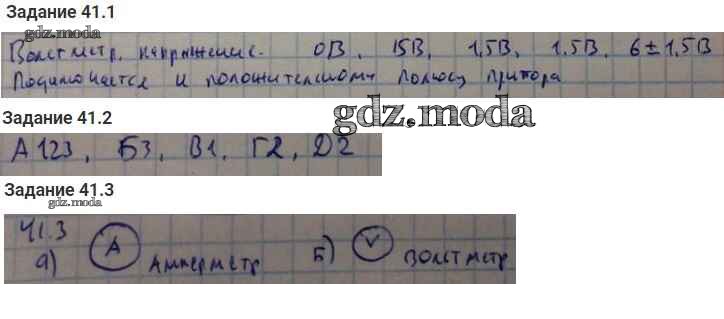 Задание 41.1
gdz.moda
Вольтметр. напряжение. 0В, 15В, 1,5В, 1.5В. 6 ± 1,5В
Подключается к положительному полюсу прибора
gdz.moda
Задание 41.2
А 123, Б3, В1, Г2, Д2
Задание 41.3
gdz.moda
41.3
а) А Амперметр Б) V Вольтметр